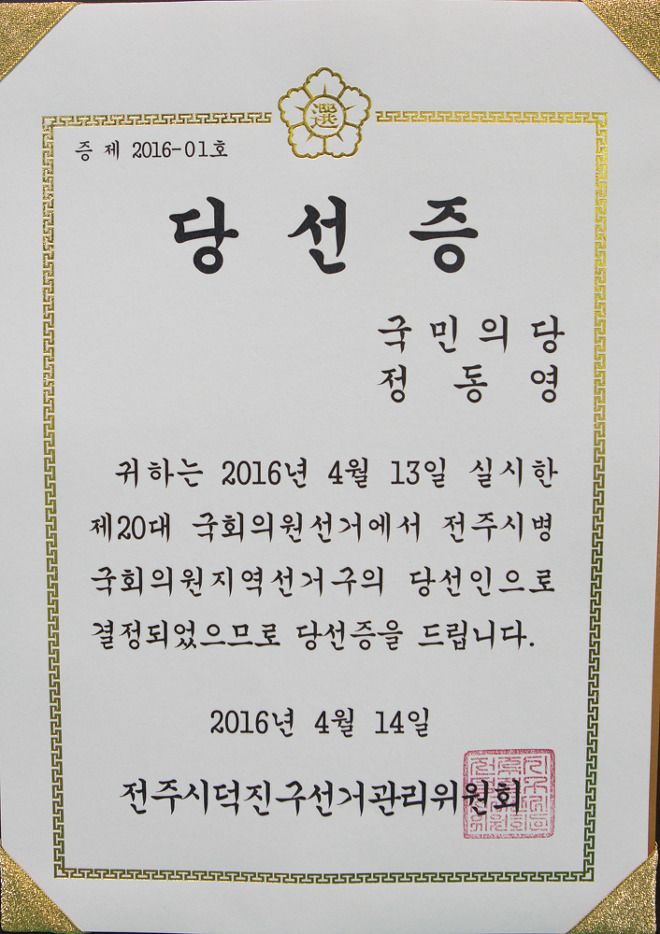 選
증 제 2016-01호
당 선 증
국 민 의 당
정 동 영
귀하는 2016년 4월 13일 실시한
제20대 국회의원선거에서 전주시병
국회의원지역선거구의 당선인으로
결정되었으므로 당선증을 드립니다.
2016년 4월 14일
전주시덕진구선거관리위원회